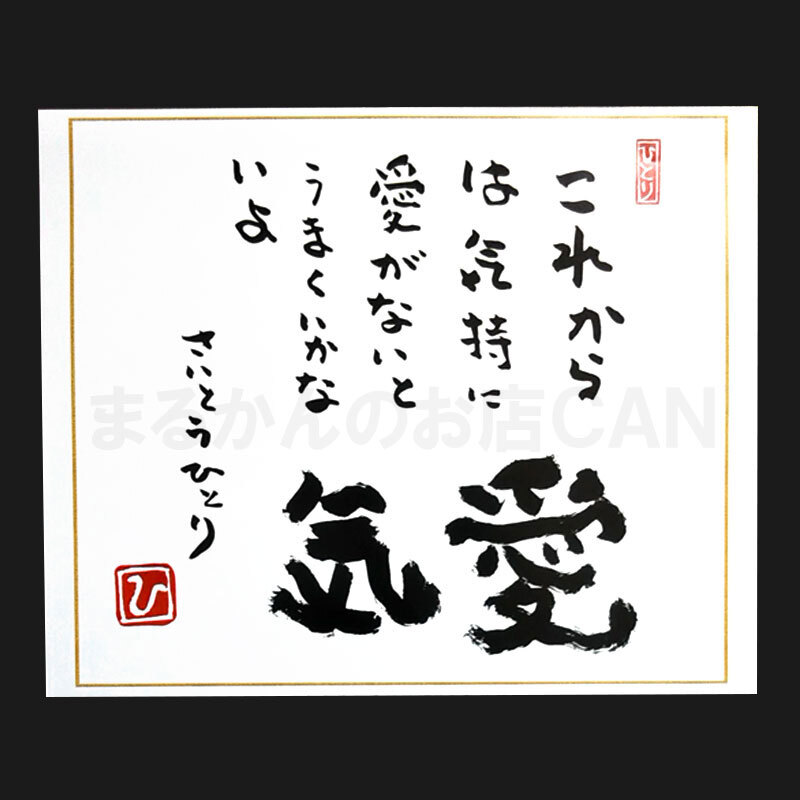 ひとり
これから
は気持に
愛がないと
うまくいかな
いよ
愛気
さいとうひとり
ひ
まるかんのお店CAN